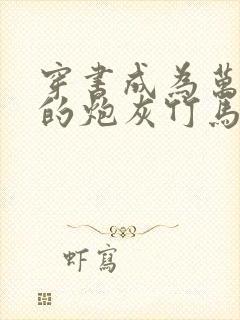 穿書成為萬
的炮灰竹馬
虾寫